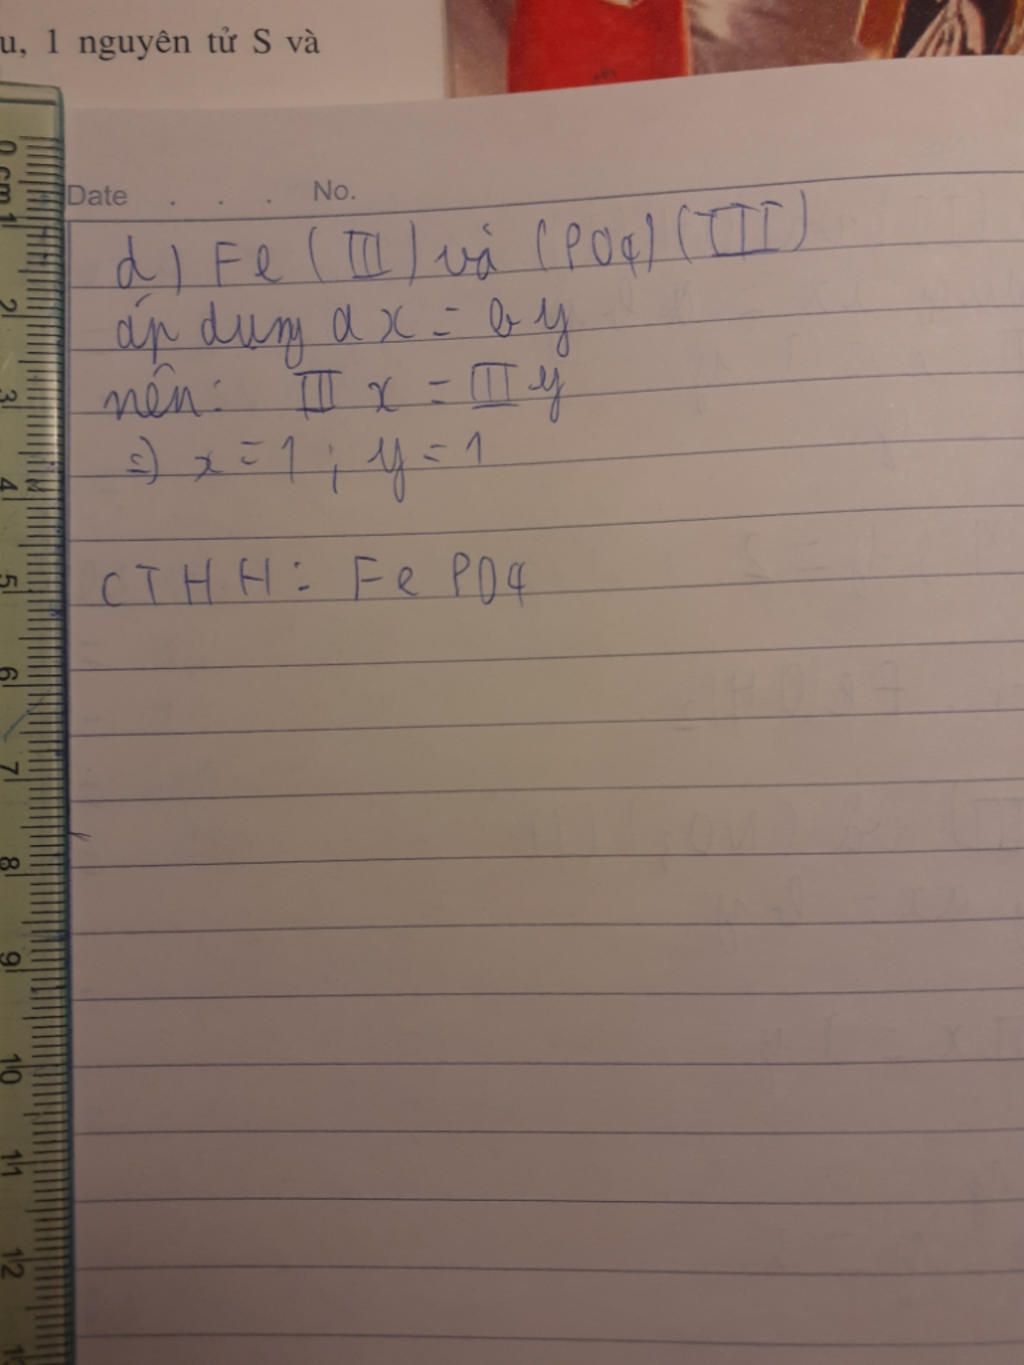 u, 1 nguyên tử S và
Date . . . No.
d) Fe (III) và (PO4) (III)
áp dụng ax = by
nên: III x = III y
=) x = 1 ; y = 1
CTHH: Fe PO4
0 cm 1 2 3 4 5 6 7 8 9 10 11 12